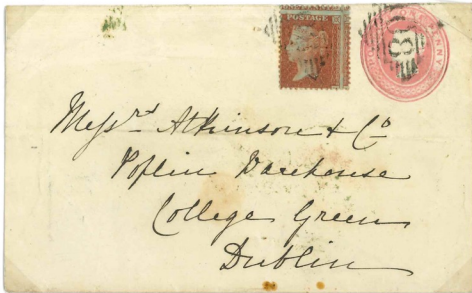 POSTAGE
PENNY
Messrs Atkinson & Co
Poplin Warehouse
College Green
Dublin